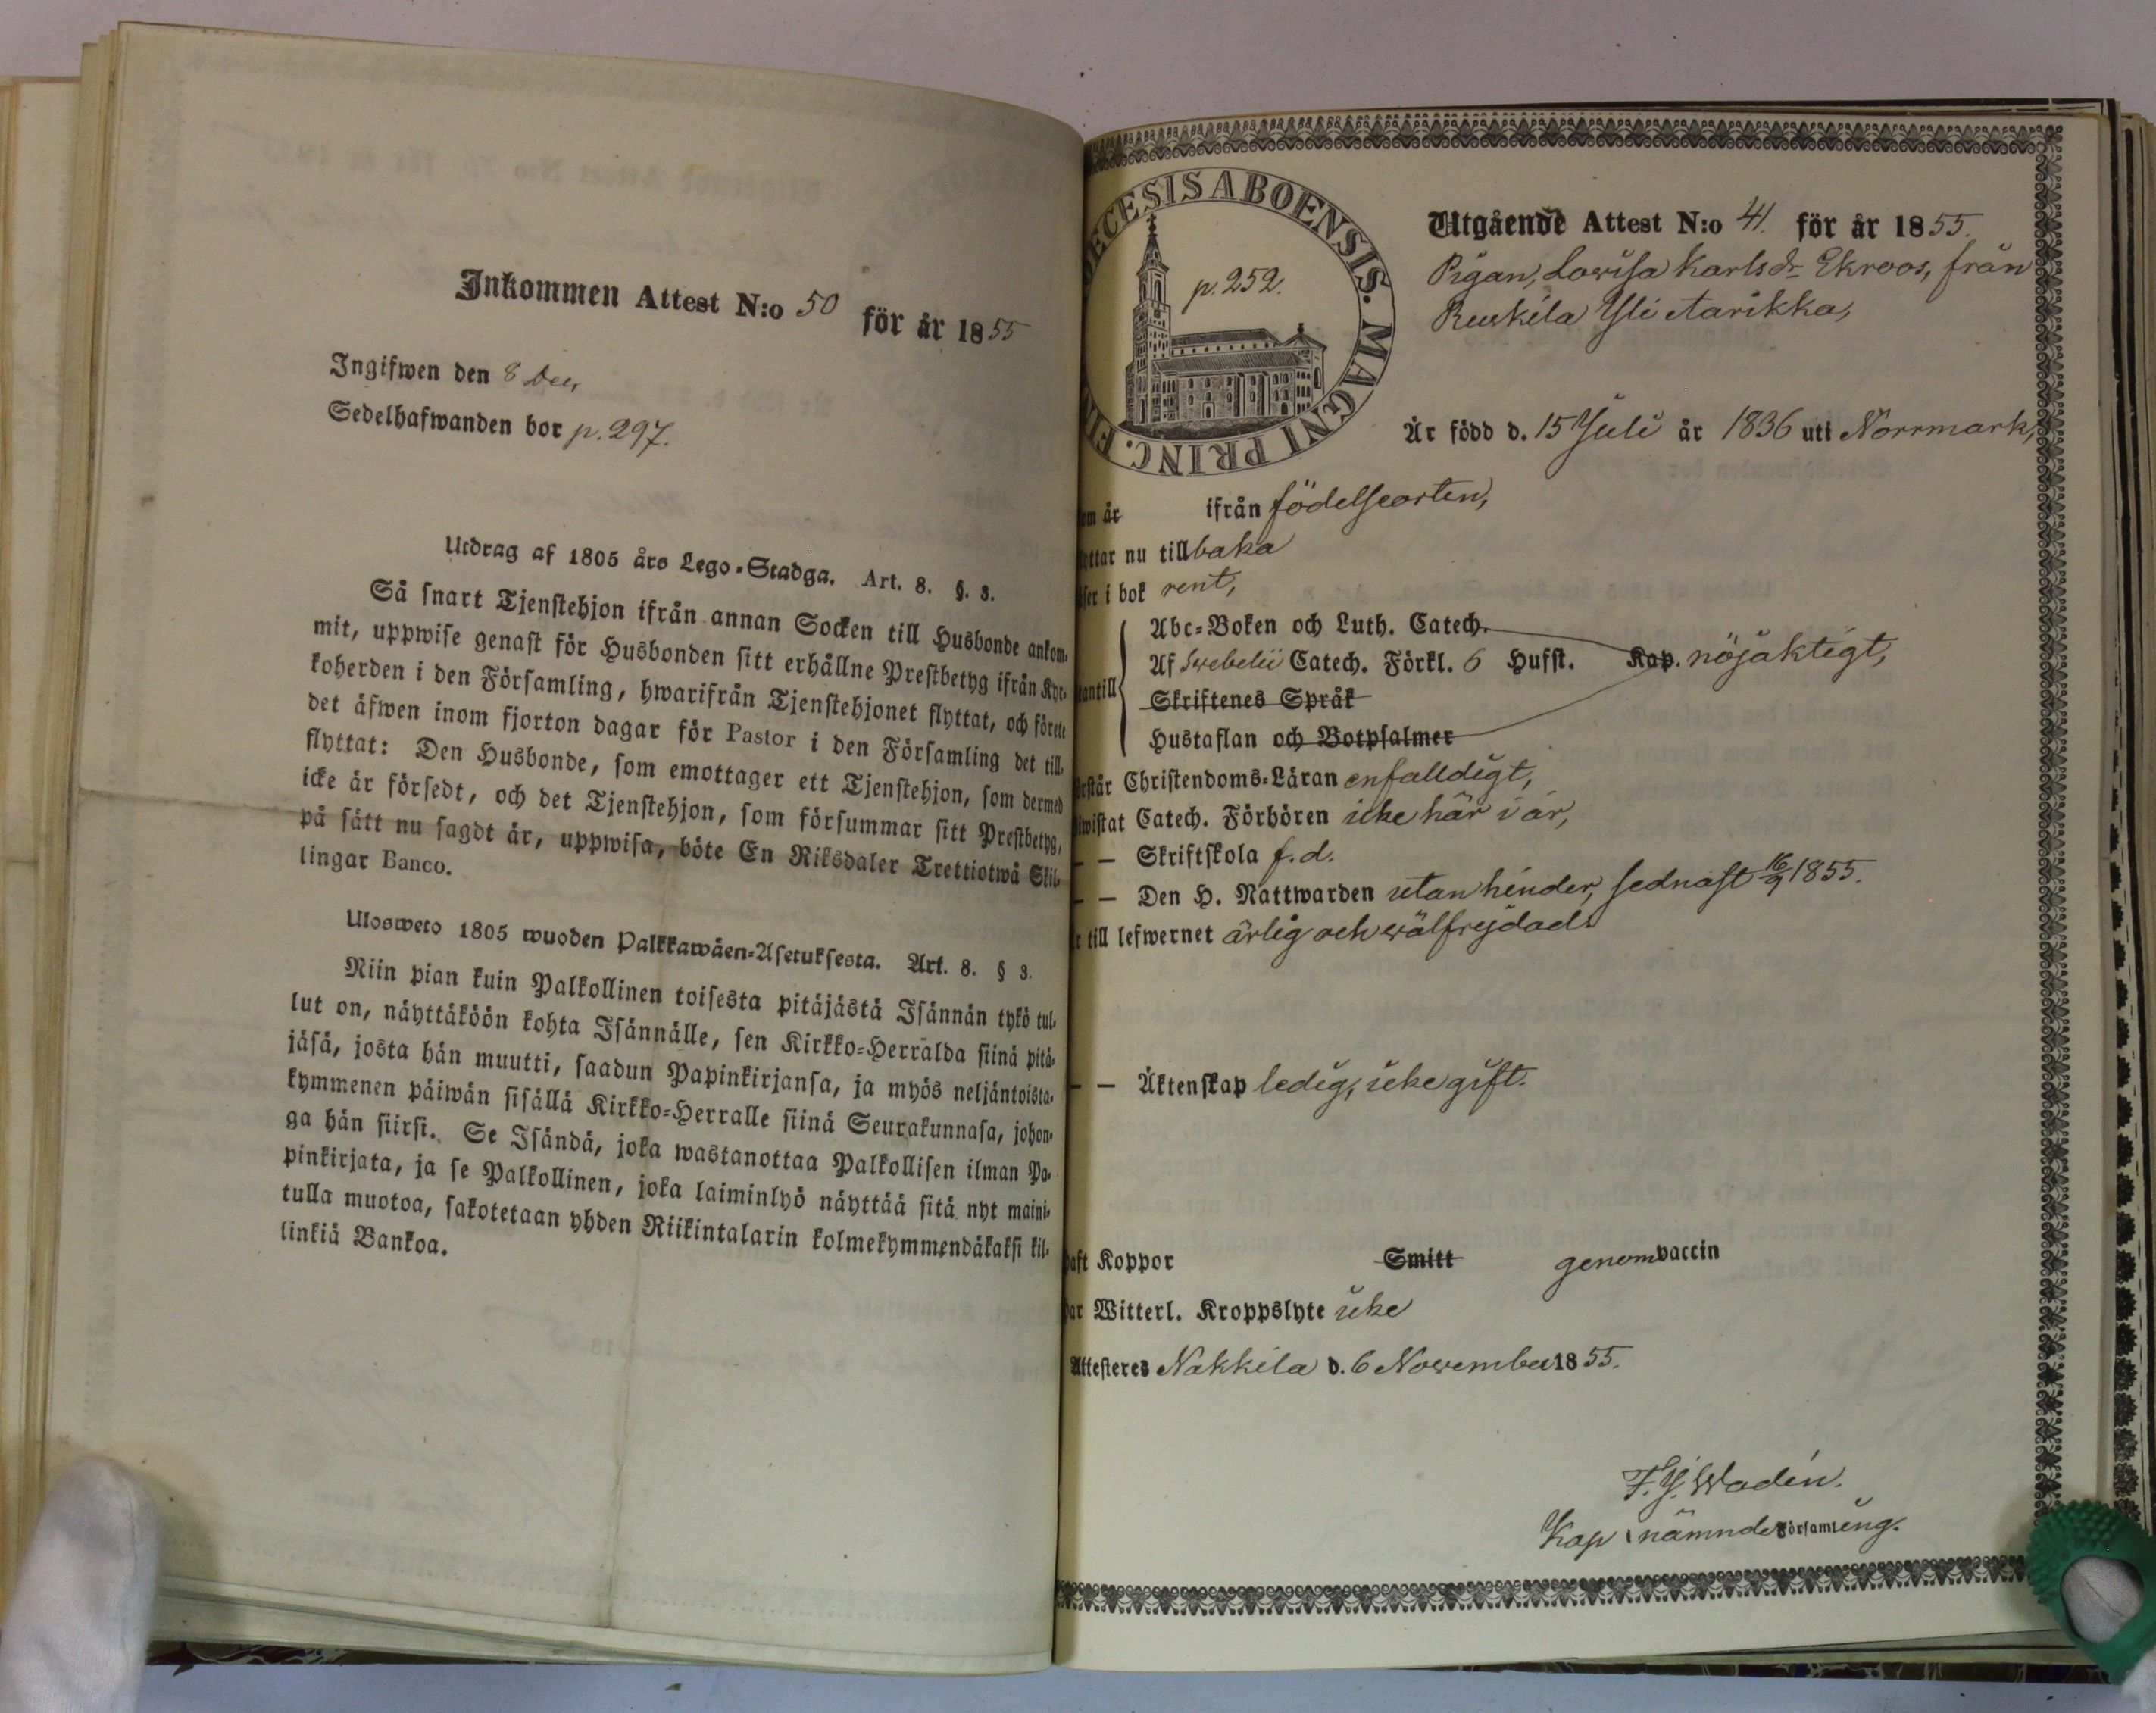 Inkommen Attest N:o 50 för år 1855
Ingifwen den 8 Dec,
Sedelhafwanden bor p. 297.
Utdrag af 1805 års Lego-Stadga. Art. 8. §. 8.
Så snart Tjenstehjon ifrån annan Socken till Husbonde ankom-
mit, uppwise genast för Husbonden sitt erhållne Prestbetyg ifrån Kyr-
koherden i den Församling, hwarifrån Tjenstehjonet flyttat, och förete
det äfwen inom fjorton dagar för Pastor i den Församling det till-
flyttat: Den Husbonde, som emottager ett Tjenstehjon, som dermed
icke är försedt, och det Tjenstehjon, som försummar sitt Prestbetyg,
på sätt nu sagdt är, uppwisa, böte En Riksdaler Trettiotwå Skil-
lingar Banco.
Ulosweto 1805 wuoden Palkkawäen-Asetuksesta. Art. 8. § 8.
Niin pian kuin Palkollinen toisesta pitäjästä Isännän tykö tul-
lut on, näyttäköön kohta Isännälle, sen Kirkko-Herralda siinä pitä-
jäsä, josta hän muutti, saadun Papinkirjansa, ja myös neljäntoista-
kymmenen päiwän sisällä Kirkko-Herralle siinä Seurakunnasa, johon-
ga hän siirsi. Se Isändä, joka wastanottaa Palkollisen ilman Pa-
pinkirjata, ja se Palkollinen, joka laiminlyö näyttää sitä nyt maini-
tulla muotoa, sakotetaan yhden Riikintalarin kolmekymmendäkaksi kil-
linkiä Bankoa.
ECESIS ABOENSIS. MAGNI PRINC. FIN
p. 252.
Utgående Attest N:o 41. för år 1855.
Pigan, Lovisa Karlsdr Ekroos, från
Ruskila Yli Aarikka,
Är född d. 15 Juli år 1836 uti Norrmark,
om år ifrån födelseorten,
yttar nu tillbaka
äser i bok rent,
Abc-Boken och Luth. Catech.
Af Svebelii Catech. Förkl. 6 Hufst. Kap. nöjaktigt,
antill
Skriftenes Språk
Hustaflan och Botpsalmer
örstår Christendoms-Läran enfalldigt,
iwistat Catech. Förhören icke här i år,
– – Skriftskola f. d.
– – Den H. Nattwarden utan hinder, sednast 16/9 1855.
r till lefwernet ärlig och välfrejdad.
– – Äktenskap ledig, icke gift.
haft Koppor Smitt genom vaccin
har Witterl. Kroppslyte icke
Attesteres Nakkila d. 6 November 1855.
F. J. Wadén.
Kap i nämnde Församling.